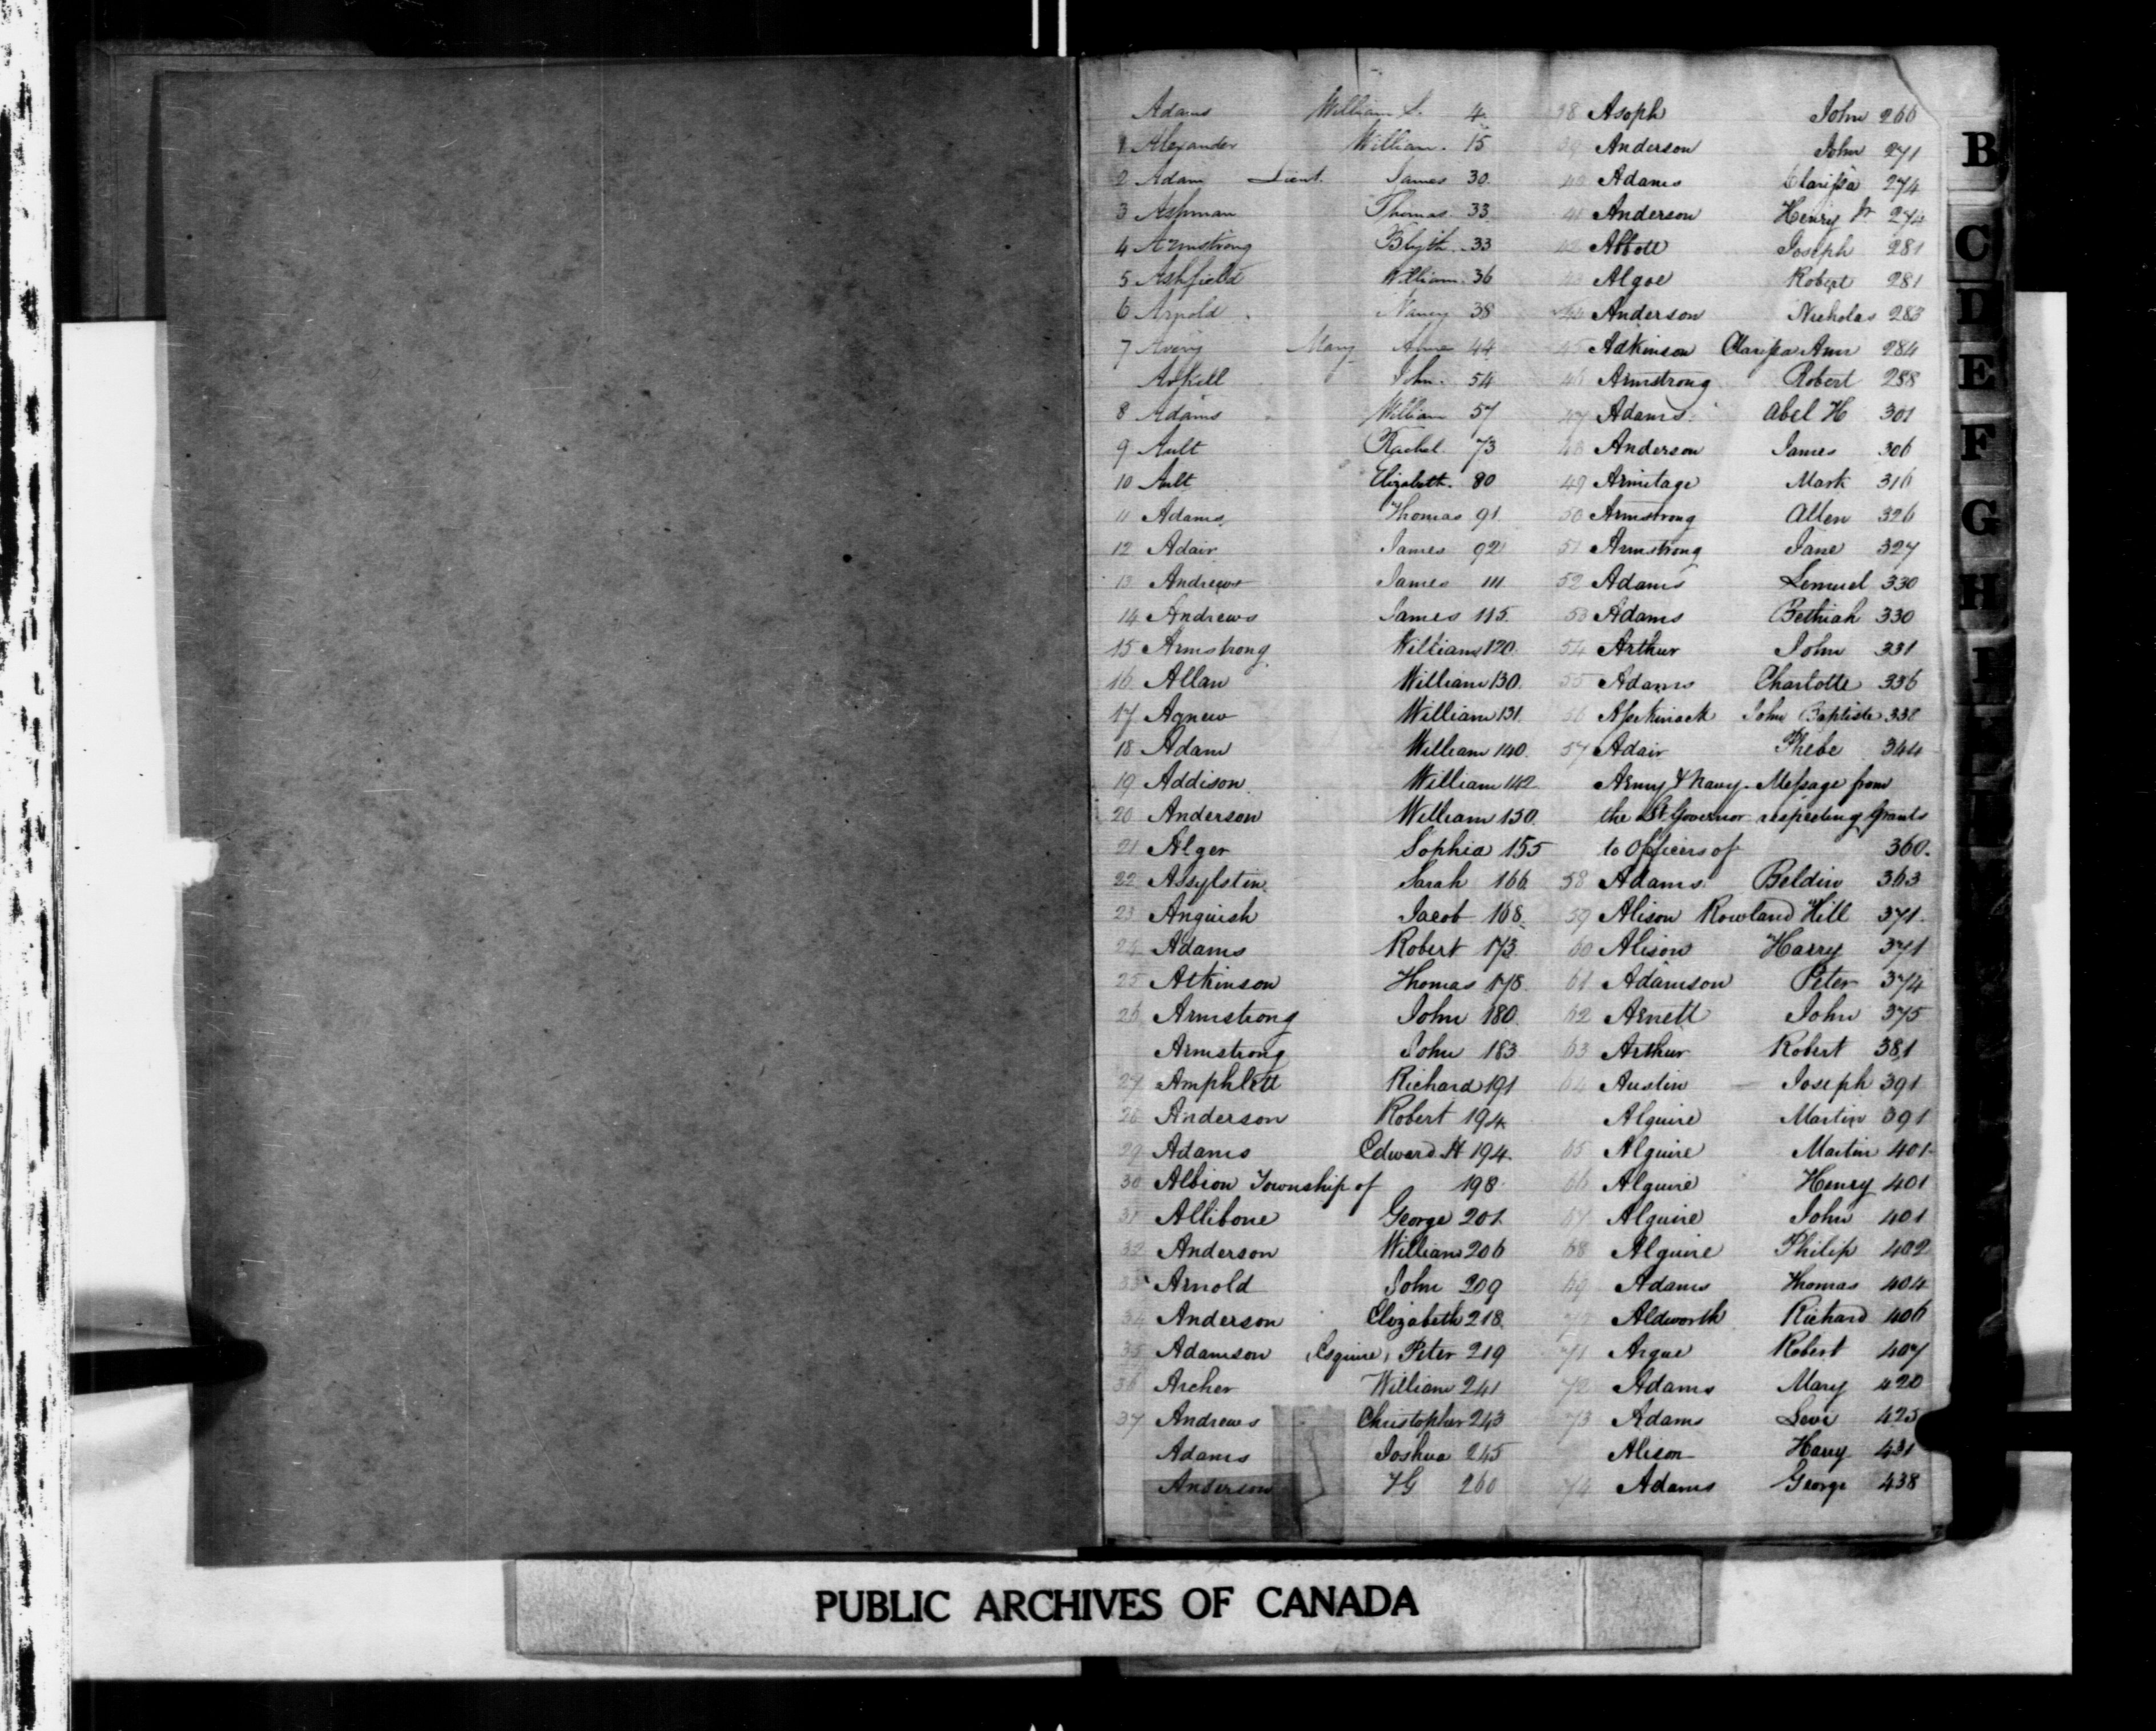 Adams William L. 4
1 Alexander William. 15
2 Adam Lieut. James 30.
3 Ashman Thomas 33
4 Armstrong Blyth. 33
5 Ashfield William. 36
6 Arnold Nancy 38
7 Avery Mary Anne 44
Askell John. 54
8 Adams William 57
9 Ault Rachel 73
10 Ault Elizabeth. 80
11 Adams Thomas 91.
12 Adair James 92
13 Andrews James 111
14 Andrews James 115.
15 Armstrong William 120.
16 Allan William 130.
17 Agnew William 131.
18 Adam William 140.
19 Addison William 142.
20 Anderson William 150.
21 Alger Sophia 155
22 Assylstin Sarah 166
23 Anguish Jacob 168.
24 Adams Robert 173.
25 Atkinson Thomas 178.
26 Armstrong John 180.
Armstrong John 183
27 Amphlett Richard 191
28 Anderson Robert 194
29 Adams Edward H 194.
30 Albion Township of 198
31 Allibone George 201
32 Anderson William 206
33 Arnold John 209
34 Anderson Elizabeth 218.
35 Adamson (Esquire) Peter 219
36 Archer William 241
37 Andrews Christopher 243
Adams Joshua 245
Anderson TG 260
38 Asoph John 266
39 Anderson John 271
40 Adams Clarissa 274
41 Anderson Henry Jr 274
42 Abbott Joseph 281
43 Algoe Robert 281
44 Anderson Nicholas 283
45 Adkinson Clarissa Ann 284
46 Armstrong Robert 288
47 Adams Abel H 301
48 Anderson James 306
49 Armitage Mark 316
50 Armstrong Allen 326
51 Armstrong Jane 327
52 Adams Lemuel 330
53 Adams Bethiah 330
54 Arthur John 331
55 Adams Charlotte 336
56 John Baptiste 338
57 Adair Phebe 344
Army & Navy. Message from
the Lt Governor respecting Grants
to Officers of 360.
58 Adams Beldin 363
59 Alison Rowland Hill 371.
60 Alison Harry 371
61 Adamson Peter 374
62 Arnett John 375
63 Arthur Robert 381
64 Austin Joseph 391
Alguire Martin 391
65 Alguire Martin 401
66 Alguire Henry 401
67 Alguire John 401
68 Alguire Philip 402
69 Adams Thomas 404
70 Aldworth Richard 406
71 Argue Robert 407
72 Adams Mary 420
73 Adams Levi 425
Alison Harry 431
74 Adams George 438
B
C
D
E
F
G
H
I
L
PUBLIC ARCHIVES OF CANADA